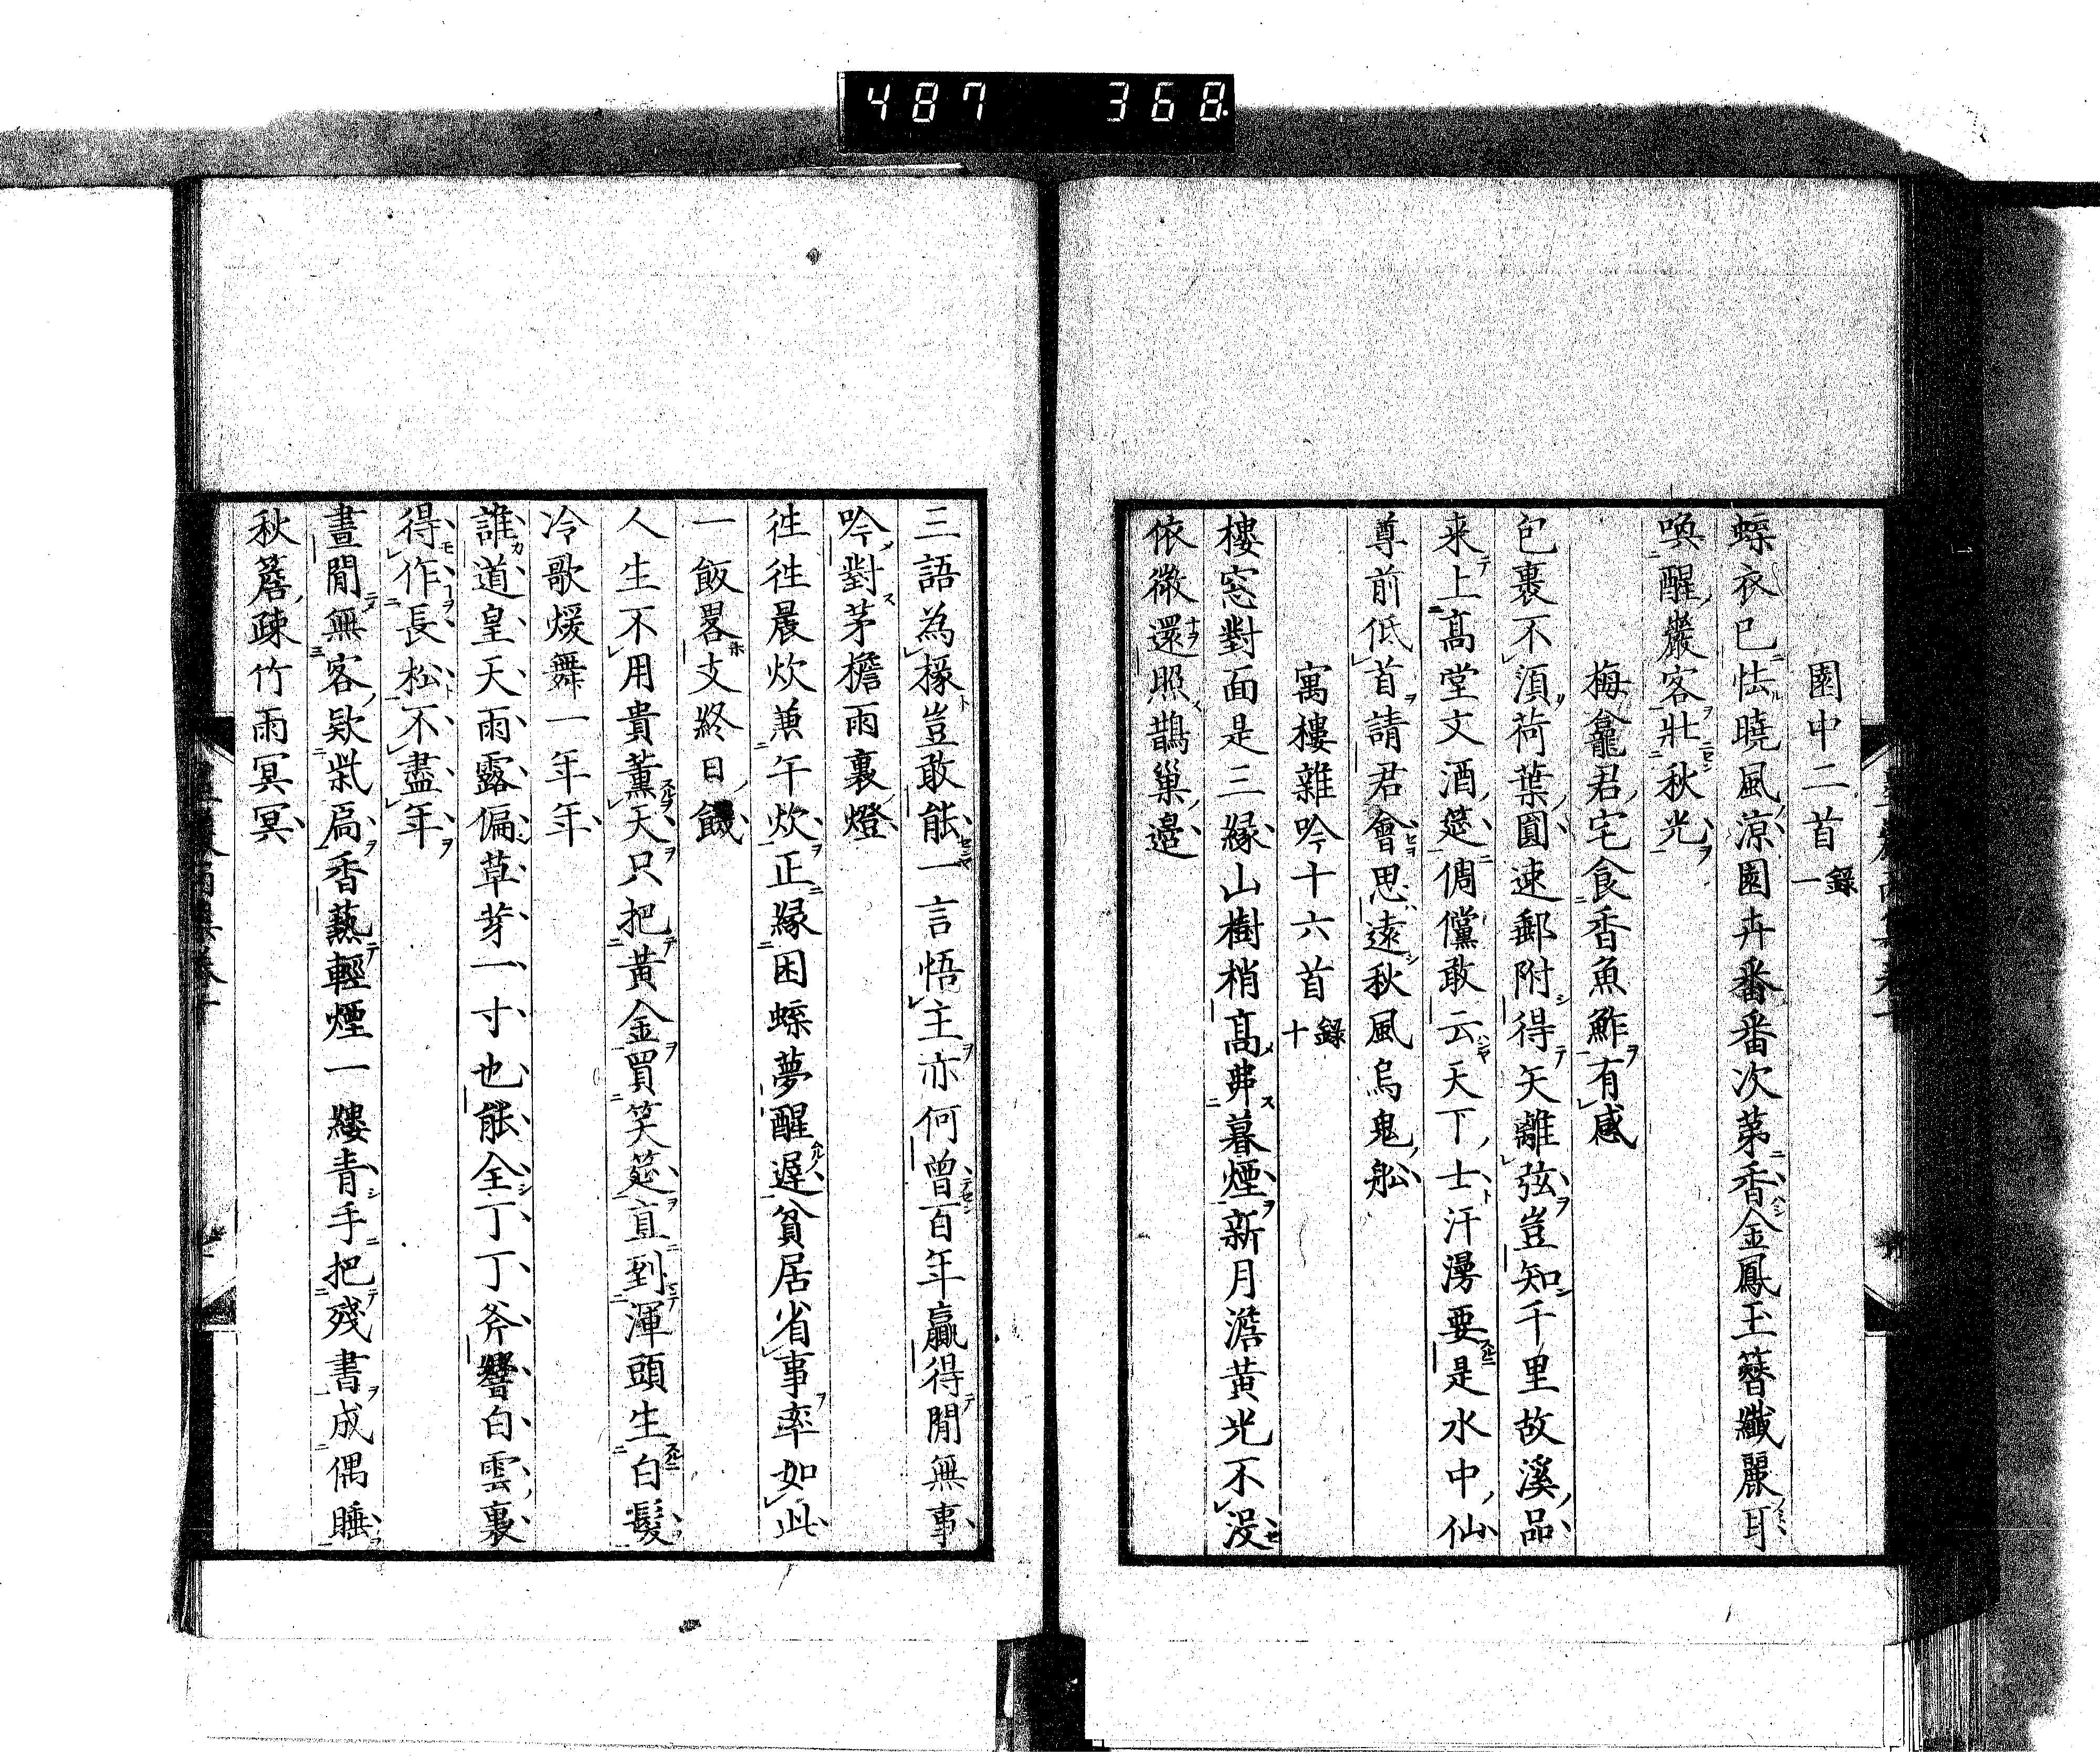 487 368
園中二首 錄一
蝶衣已怯曉風涼園卉番番次第香金鳳玉簪纖麗耳
喚醒嚴客壯秋光
梅龕君宅食香魚鮓有感
包裹不須荷葉圓速郵附得矢離弦豈知千里故溪品
来上髙堂文酒筵倜儻敢云天下士汗漫要是水中仙
尊前低首請君會思遠秋風烏鬼舩
寓樓雜吟十六首 錄十
樓窓對面是三緣山樹梢髙弗暮煙新月澹黃光不沒
依微還照鵲巢邊
三語為掾豈敢能一言悟主亦何曾百年贏得閒無事
吟對茅檐雨裏燈
徃徃晨炊兼午炊正緣困蝶夢醒遲貧居省事率如此
一飯畧支終日饑
人生不用貴薰天只把黃金買笑筵直到渾頭生白髮
冷歌煖舞一年年
誰道皇天雨露偏草芽一寸也能全丁丁斧響白雲裏
得作長松不盡年
晝閒無客欵柴扃香爇輕煙一縷青手把殘書成偶睡
秋簷疎竹雨冥冥